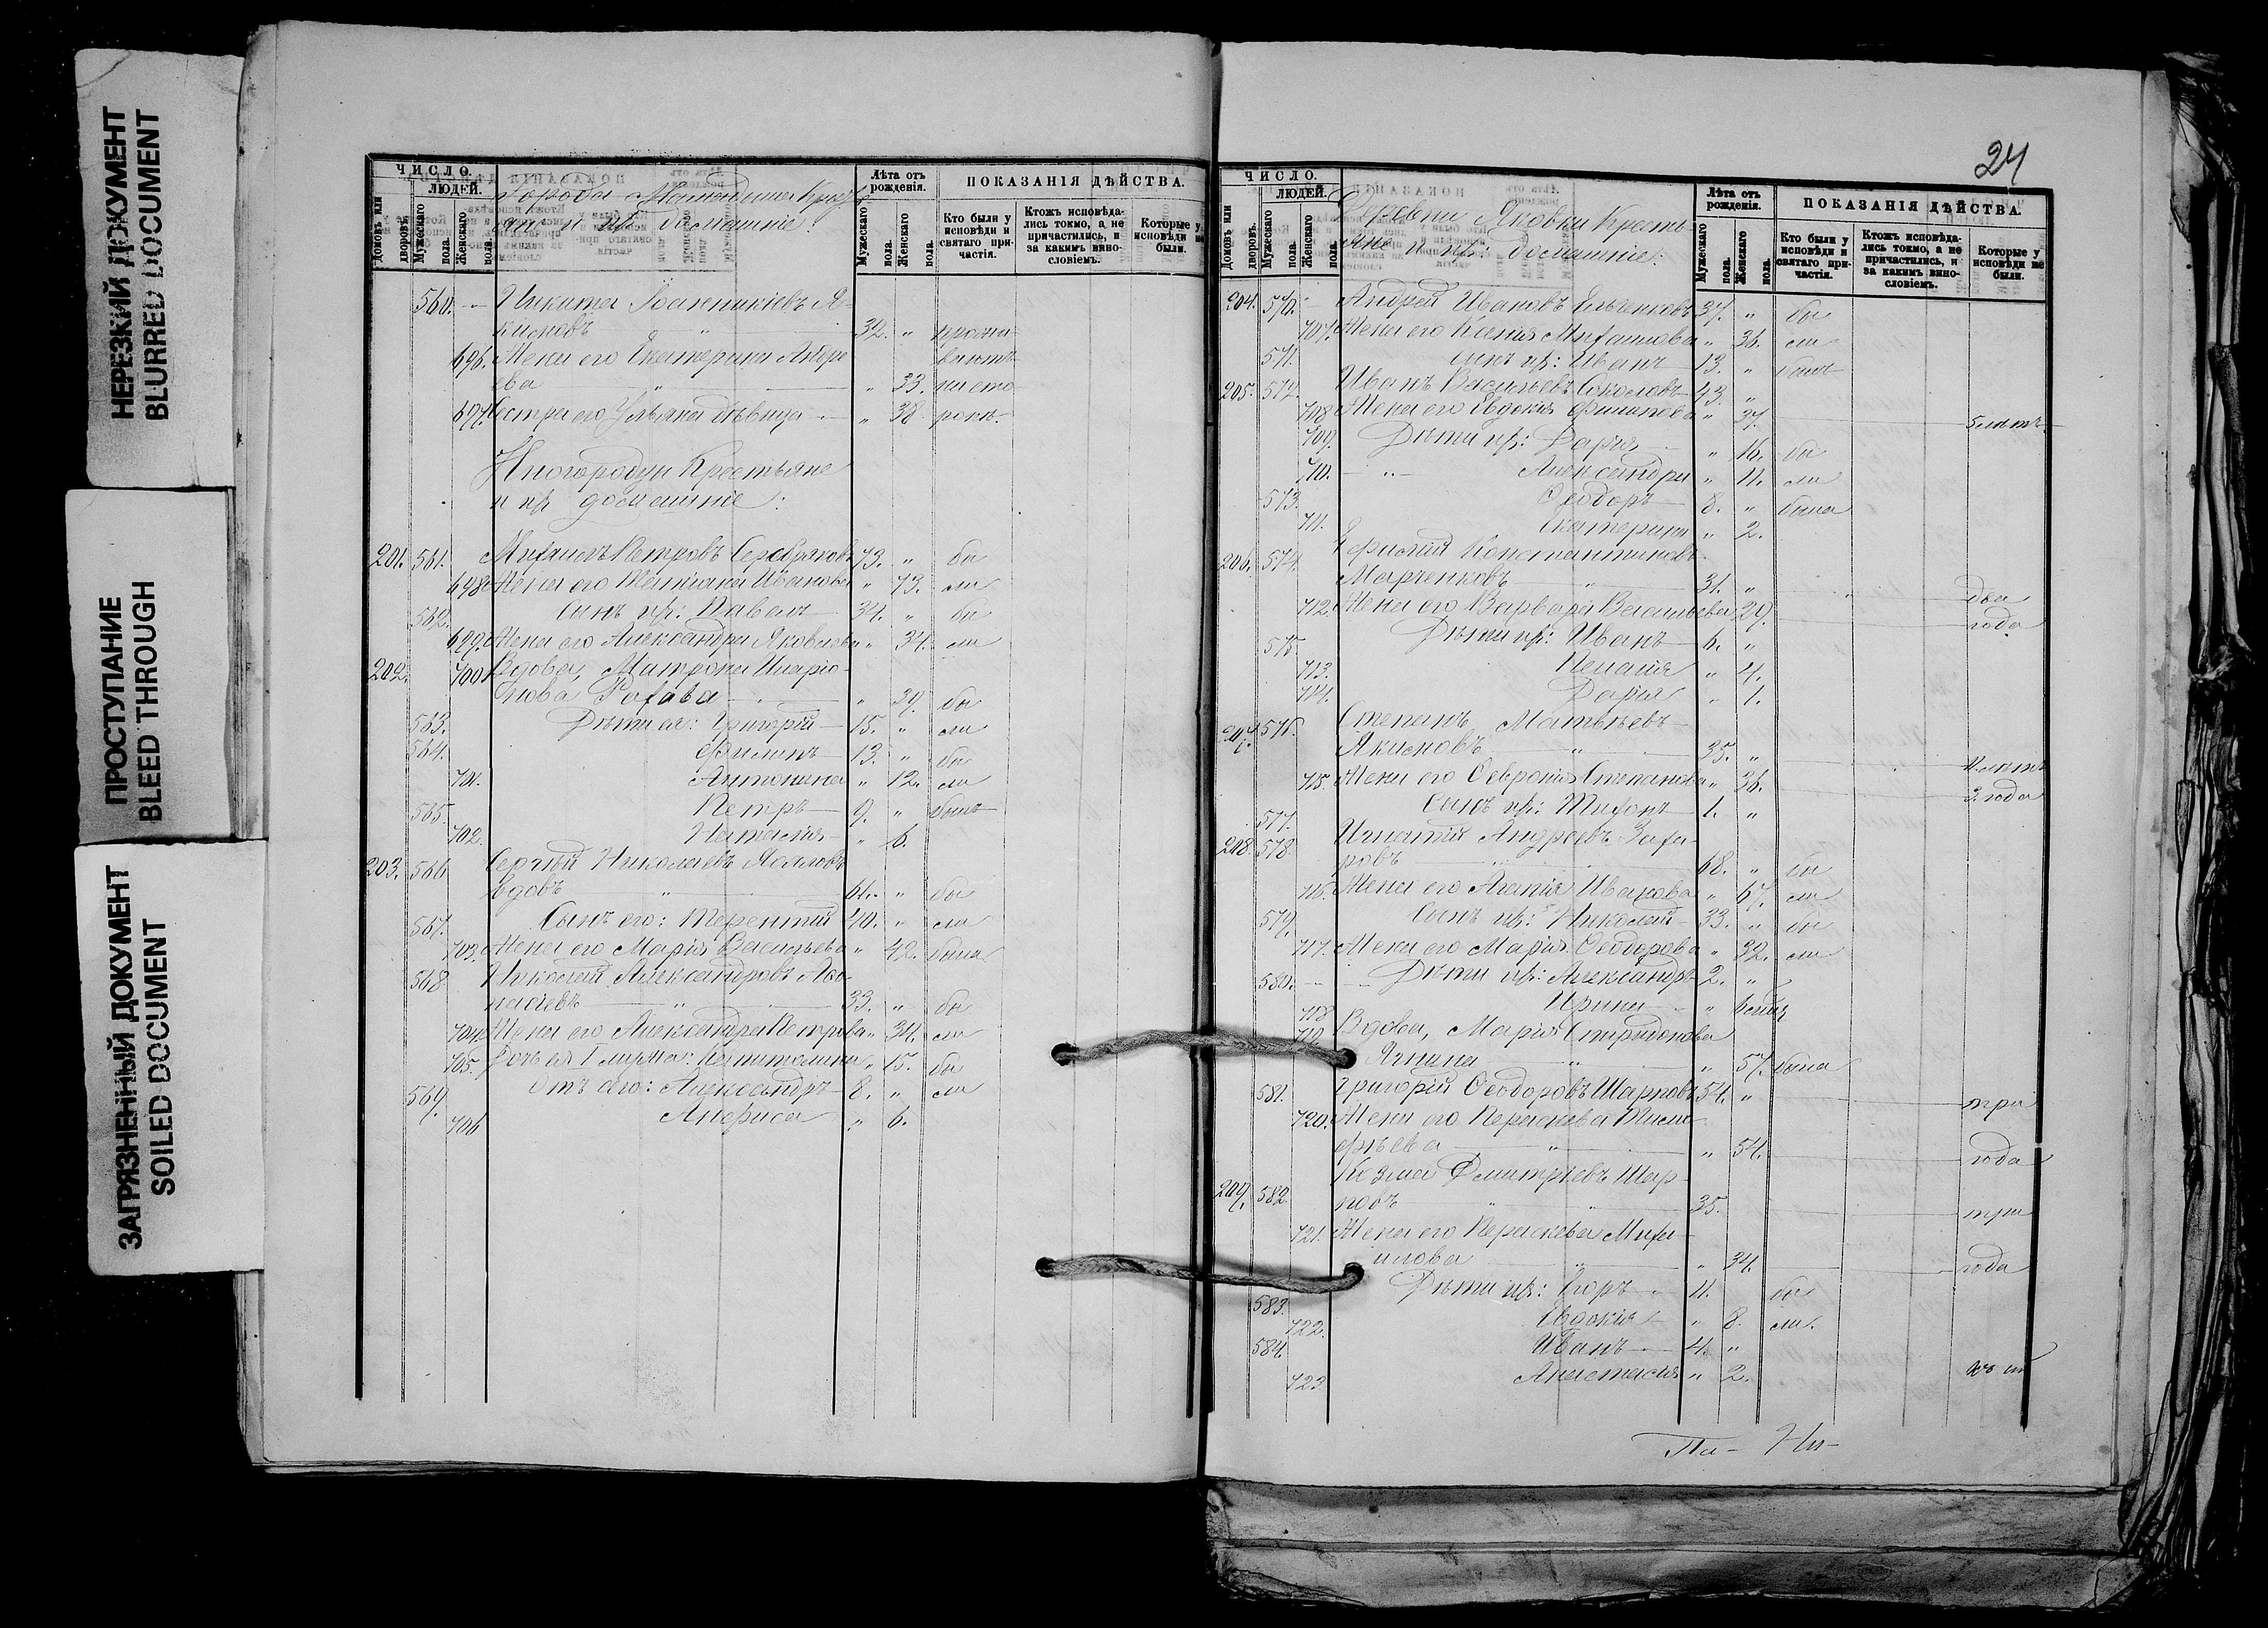 НЕРЕЗКИЙ ДОКУМЕНТ
BLURRED DOCUMENT
ПРОСТУПАНИЕ
BLEED THROUGH
ЗАГРЯЗНЕННЫЙ ДОКУМЕНТ
SOILED DOCUMENT
ЧИСЛО.
ЛЮДЕЙ.
Домовъ или дворовъ.
Мужескаго пола.
Женскаго пола.
Города
и их домашніе:
Лѣта отъ рожденія.
Мужескаго пола.
Женскаго пола.
ПОКАЗАНІЯ ДѢЙСТВА.
Кто были у исповѣди и святаго причастія.
Ктожъ исповѣдались токмо, а не причастились, и за какимъ винословіемъ.
Которые у исповѣди не были.
560. Никита Іоанникіевъ Я-
кимовъ 32. " прожи
696. Жена его Екатерина Андре
ева " 33. на сто
697. Сестра его Ульяна дѣвица " 38. ронѣ
Иногородцы Крестьяне
и их домашніе:
201. 561. Михаилъ Петровъ Серебряковъ 73. " бы
698 Жена его Татіана Иванова " 73. ли
562. Сынъ их: Павелъ 34. " бы
699. Жена его Александра Яковлева " 34. ли
202. 700 Вдова, Матрона Иларіо-
нова " 39. бы
563. Дѣти ея: Григорій 15. " ли
564. Филиппъ 13. " бы
701. Антонина " 12. ли
565. Петръ 9. " былъ
702. Наталія " 6.
203. 566 Сергѣй Николаевъ
вдовъ " бы
567. Сынъ его: Терентій 40. " ли
703. Жена его Марія Васильева " 42. была
568 Николай Александровъ Аѳа-
насіевъ 33. " бы
704. Жена его Александра Петрова " 34. ли
705. Дочь ея 1 мужа: Капитолина " 15. бы
569. отъ сего: Александръ 8. " ли
706 Анфиса " 6.
24
ЧИСЛО.
ЛЮДЕЙ.
Домовъ или дворовъ.
Мужескаго пола.
Женскаго пола.
Деревни Яковки Кресть-
яне и их: домашніе:
Лѣта отъ рожденія.
Мужескаго пола.
Женскаго пола.
ПОКАЗАНІЯ ДѢЙСТВА.
Кто были у исповѣди и святаго причастія.
Ктожъ исповѣдались токмо, а не причастились, и за какимъ винословіемъ.
Которые у исповѣди не были.
204. 570. Андрей Ивановъ 37. " бы
707. Жена его Ксенія Михаилова " 36. ли
571. Сынъ их: Иванъ 13. " былъ
205. 572. Иванъ Васильевъ Соколовъ 43. "
708 Жена его Евдокія Филиппова " 37. 5 лѣтъ
709. Дѣти их: Дарія " 16. бы
710. Александра " 11. ли
573. Ѳеодоръ 8. " была
711. Екатерина " 2.
206. 574. Константиновъ
Марченковъ 31. " два
712. Жена его Варвара Васильева 29. года
575 Дѣти их: Иванъ 6. "
713. Пелагія " 4.
714. Дарія " 1.
207. 576. Степанъ Матвѣевъ
Якимовъ 35. "
715. Жена его Ѳевронія Степанова " 36. 2 года
577. Сынъ их: Тихонъ 1. "
208. 578. Игнатій Андреевъ Заха-
ровъ 68. " бы
716. Жена его Агапія Иванова " 67. ли
579. Сынъ их: Николай 33. " бы
717. Жена его Марія Ѳеодорова " 32. ли
580. Дѣти их: Александръ 2. "
718 Ирина "
719. Вдова, Марія Спиридонова
" 57. была
581. Григорій Ѳеодоровъ Шарповъ 54. " три
720. Жена его Параскева Тимо
фѣева " 54. года
209. 582. Козма Димитріевъ Шар-
повъ 35. три
721. Жена его Параскева Миха-
илова " 34. года
583. Дѣти их: Егоръ 11. бы
722. Евдокія " 8. ли.
584. Иванъ 4. "
723 Анастасія " 2.